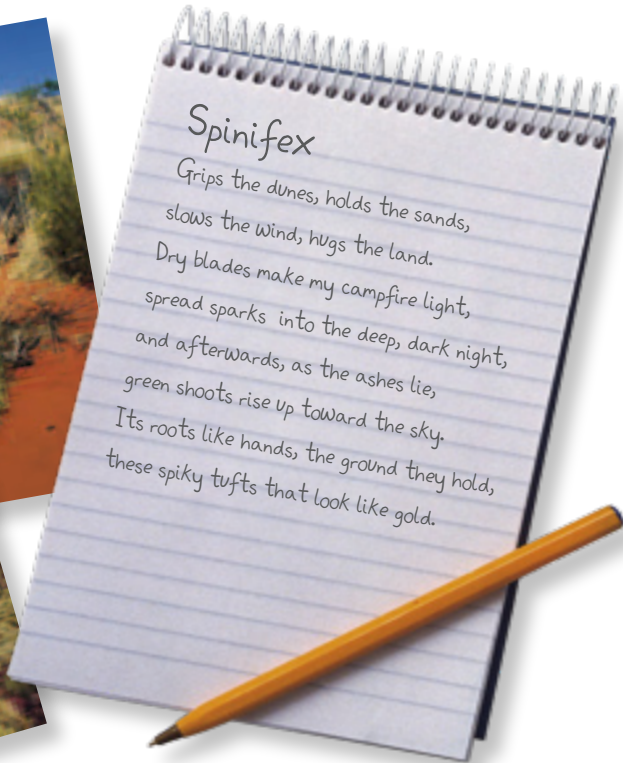 Spinifex
Grips the dunes, holds the sands,
slows the wind, hugs the land.
Dry blades make my campfire light,
spread sparks into the deep, dark night,
and afterwards, as the ashes lie,
green shoots rise up toward the sky.
Its roots like hands, the ground they hold,
these spiky tufts that look like gold.